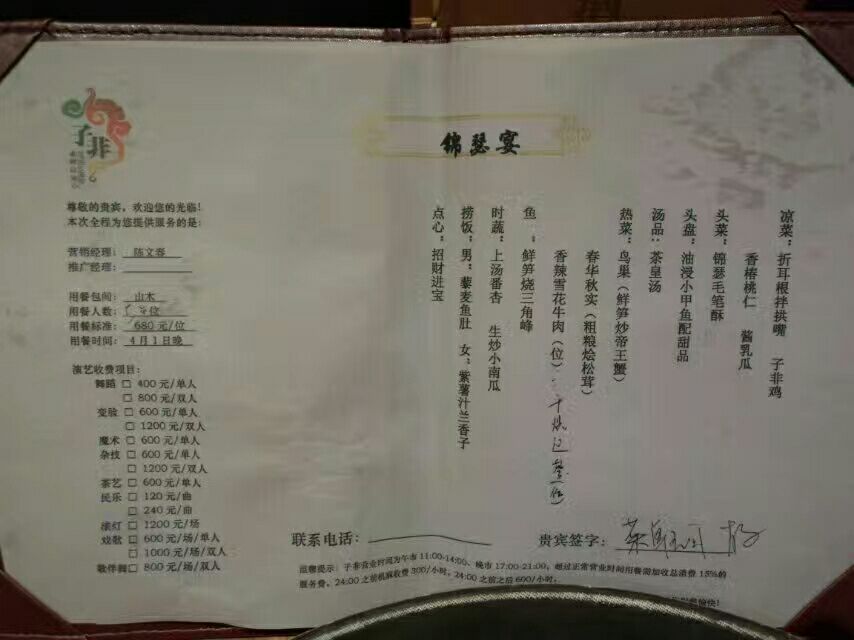 子非
锦瑟宴
尊敬的贵宾,欢迎您的光临!
本次全程为您提供服务的是:
营销经理: 陈文蓉
推广经理:
用餐包间: 山木
用餐人数: 位
用餐标准: 680元/位
用餐时间: 4月1日晚
演艺收费项目:
舞蹈 □ 400元/单人
□ 800元/双人
变脸 □ 600元/单人
□ 1200元/双人
魔术 □ 600元/单人
杂技 □ 600元/单人
□ 1200元/双人
茶艺 □ 600元/单人
民乐 □ 120元/曲
□ 240元/曲
滚灯 □ 1200元/场
戏歌 □ 600元/场/单人
□ 1000元/场/双人
歌伴舞□ 800元/场/双人
凉菜:折耳根拌拱嘴 子非鸡
香椿桃仁 酱乳瓜
头菜:锦瑟毛笔酥
头盘:油浸小甲鱼配甜品
汤品:茶皇汤
热菜:鸟巢(鲜笋炒帝王蟹)
春华秋实(粗粮烩松茸)
香辣雪花牛肉(位)
鱼 :鲜笋烧三角峰
时蔬:上汤番杏 生炒小南瓜
捞饭:男:藜麦鱼肚 女:紫薯汁兰香子
点心:招财进宝
联系电话:
贵宾签字:
温馨提示:子非营业时间为午市11:00-14:00、晚市17:00-21:00,超过正常营业时间用餐需加收总消费15%的
服务费。24:00之前机麻收费300/小时;24:00之前之后600/小时。
愉快!